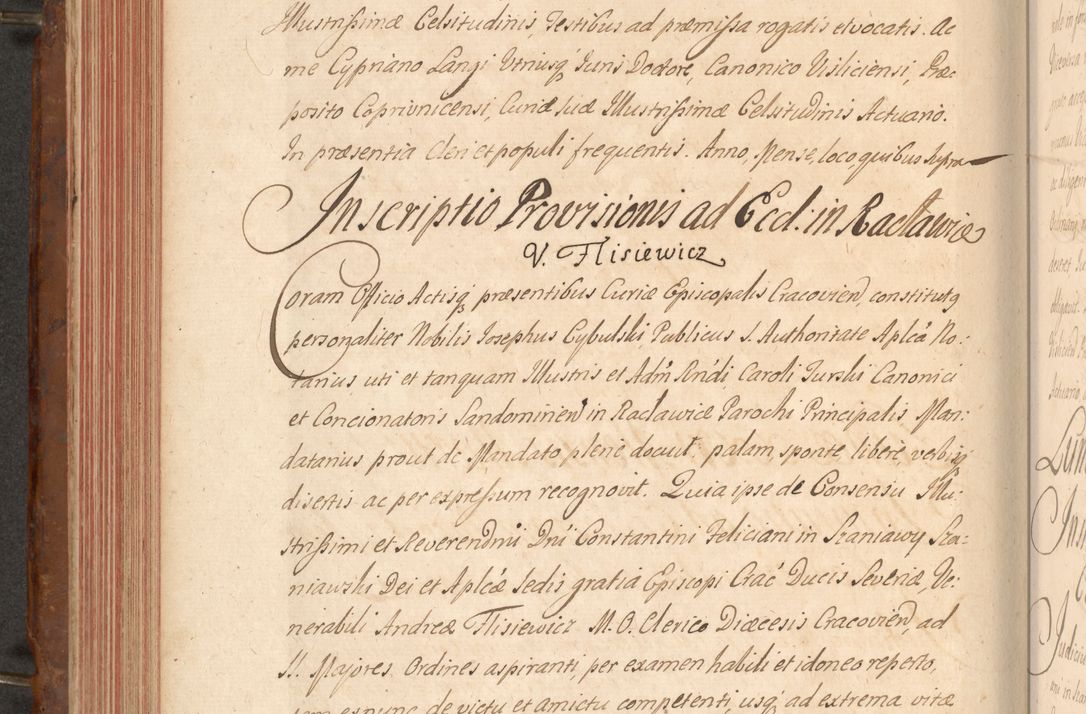 Illustrißimæ Celsitudinis, Testibus ad præmißa rogatis et vocatis. Ac
me Cypriano Lanzi Utriusq́ Juris Doctore, Canonico Visliciensi, Præ-
posito Coprivnicensi, Curiæ suæ Illustrißimæ Celsitudinis Actuario.
In præsentia Cleri et populi frequentis. Anno, Mense, loco quibus supra
Inscriptio Provisionis ad Eccl: in Racławice
V. Flisiewicz
Coram Officio Actisq́ præsentibus Curiæ Episcopalis Cracovień, constitutq
personaliter Nobilis Josephus Cybulski, Publicus S. Authoritate Aplcâ No:
tarius uti et tanquam Illustris et Adm̃ Rńdi Caroli Jurski Canonici
et Concionatoris Sandomirień in Racławice Parochi Principalis Man:
datarius prout de Mandato plene docuit. palam, sponte, libere, verbisq́
disertis ac per expreßum recognovit. Quia ipse de Consensu Illu:
strißimi et Reverendmi Dńi Constantini Feliciani in Szaniawy Sza-
niawski Dei et Aplcæ Sedis gratia Episcopi Crac̃ Ducis Severiæ, Ve:
nerabili Andreæ Flisiewicz M. O. Clerico Diæcesis Cracovień, ad
SS. Majores Ordines aspiranti, per examen habili et idoneo reperto,
tam ex nunc de victu et amictu competenti, usq́ ad extrema vitæ